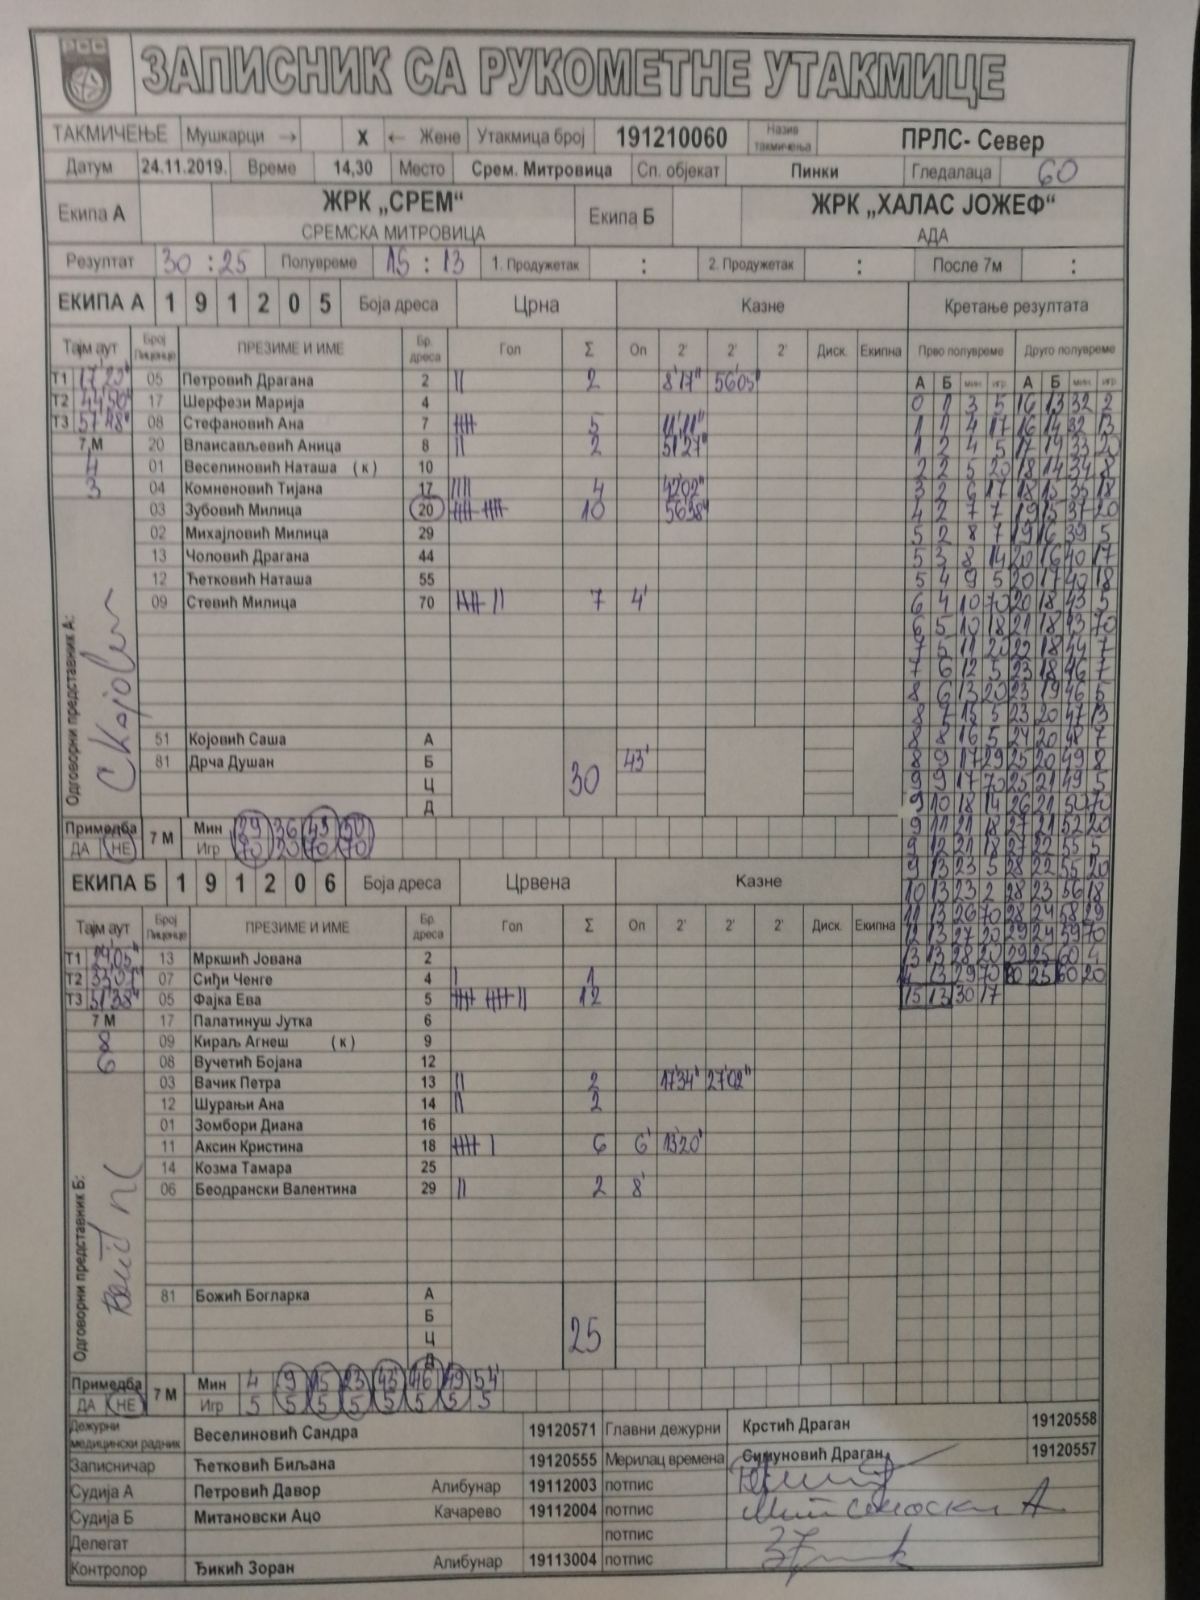 РСС
ЗАПИСНИК СА РУКОМЕТНЕ УТАКМИЦЕ
ТАКМИЧЕЊЕ Мушкарци → X ← Жене Утакмица број 191210060 Назив такмичења ПРЛС- Север
Датум 24.11.2019. Време 14,30 Место Срем. Митровица Сп. објекат Пинки Гледалаца 60
Екипа А ЖРК „СРЕМ“ Екипа Б ЖРК „ХАЛАС ЈОЖЕФ“
СРЕМСКА МИТРОВИЦА АДА
Резултат 30 : 25 Полувреме 15 : 13 1. Продужетак : 2. Продужетак : После 7м :
ЕКИПА А 1 9 1 2 0 5 Боја дреса Црна Казне Кретање резултата
Тајм аут Број Лиценце ПРЕЗИМЕ И ИМЕ Бр. дреса Гол Σ Оп 2' 2' 2' Диск. Екипна Прво полувреме Друго полувреме
А Б мин игр А Б мин игр
Т1 17'23" 05 Петровић Драгана 2 || 2 8'17" 56'05"
Т2 44'50" 17 Шерфези Марија 4
Т3 57'48" 08 Стефановић Ана 7 5 11'11"
7 М 20 Влаисављевић Аница 8 || 2 51'27"
4 01 Веселиновић Наташа (к) 10
3 04 Комненовић Тијана 17 |||| 4 42'02"
03 Зубовић Милица 20 10 56'38"
02 Михајловић Милица 29
13 Чоловић Драгана 44
12 Ћетковић Наташа 55
09 Стевић Милица 70 7 4'
Одговорни представник А:
51 Којовић Саша А
81 Дрча Душан Б 43'
Ц 30
Д
Примедба 7 М Мин 29 36 43 50
ДА НЕ Игр 70 20 70 70
0 1 3 5 16 13 32 2
1 1 4 17 16 14 32 13
1 2 4 5 17 14 33 20
2 2 5 20 18 14 34 8
3 2 6 17 18 15 35 18
4 2 7 7 19 15 37 20
5 2 8 7 19 16 39 5
5 3 8 14 20 16 40 17
5 4 9 5 20 17 40 18
6 4 10 70 20 18 43 5
6 5 10 18 21 18 43 70
7 5 11 20 22 18 44 7
7 6 12 5 23 18 46 7
8 6 13 20 23 19 46 5
8 7 15 5 23 20 47 13
8 8 16 5 24 20 48 7
8 9 17 29 25 20 49 8
9 9 17 70 25 21 49 5
9 10 18 14 26 21 50 70
9 11 21 18 27 21 52 20
9 12 21 18 27 22 55 5
9 13 23 5 28 22 55 20
10 13 23 2 28 23 56 18
11 13 26 70 28 24 58 29
12 13 27 20 29 24 59 70
13 13 28 20 29 25 60 4
14 13 29 70 30 25 60 20
15 13 30 17
ЕКИПА Б 1 9 1 2 0 6 Боја дреса Црвена Казне
Тајм аут Број Лиценце ПРЕЗИМЕ И ИМЕ Бр. дреса Гол Σ Оп 2' 2' 2' Диск. Екипна
Т1 24'05" 13 Мркшић Јована 2
Т2 33'07" 07 Сиђи Ченге 4 | 1
Т3 51'38" 05 Фајка Ева 5 12
7 М 17 Палатинуш Јутка 6
8 09 Кираљ Агнеш (к) 9
6 08 Вучетић Бојана 12
03 Вачик Петра 13 || 2 17'34" 27'02"
12 Шурањи Ана 14 || 2
01 Зомбори Диана 16
11 Аксин Кристина 18 6 6' 13'20"
14 Козма Тамара 25
06 Беодрански Валентина 29 || 2 8'
Одговорни представник Б:
81 Божић Богларка А
Б
Ц 25
Д
Примедба 7 М Мин 4 9 15 23 43 46 49 54
ДА НЕ Игр 5 5 5 5 5 5 5 5
Дежурни медицински радник Веселиновић Сандра 19120571 Главни дежурни Крстић Драган 19120558
Записничар Ћетковић Биљана 19120555 Мерилац времена Симуновић Драган 19120557
Судија А Петровић Давор Алибунар 19112003 потпис
Судија Б Митановски Ацо Качарево 19112004 потпис
Делегат потпис
Контролор Ђикић Зоран Алибунар 19113004 потпис